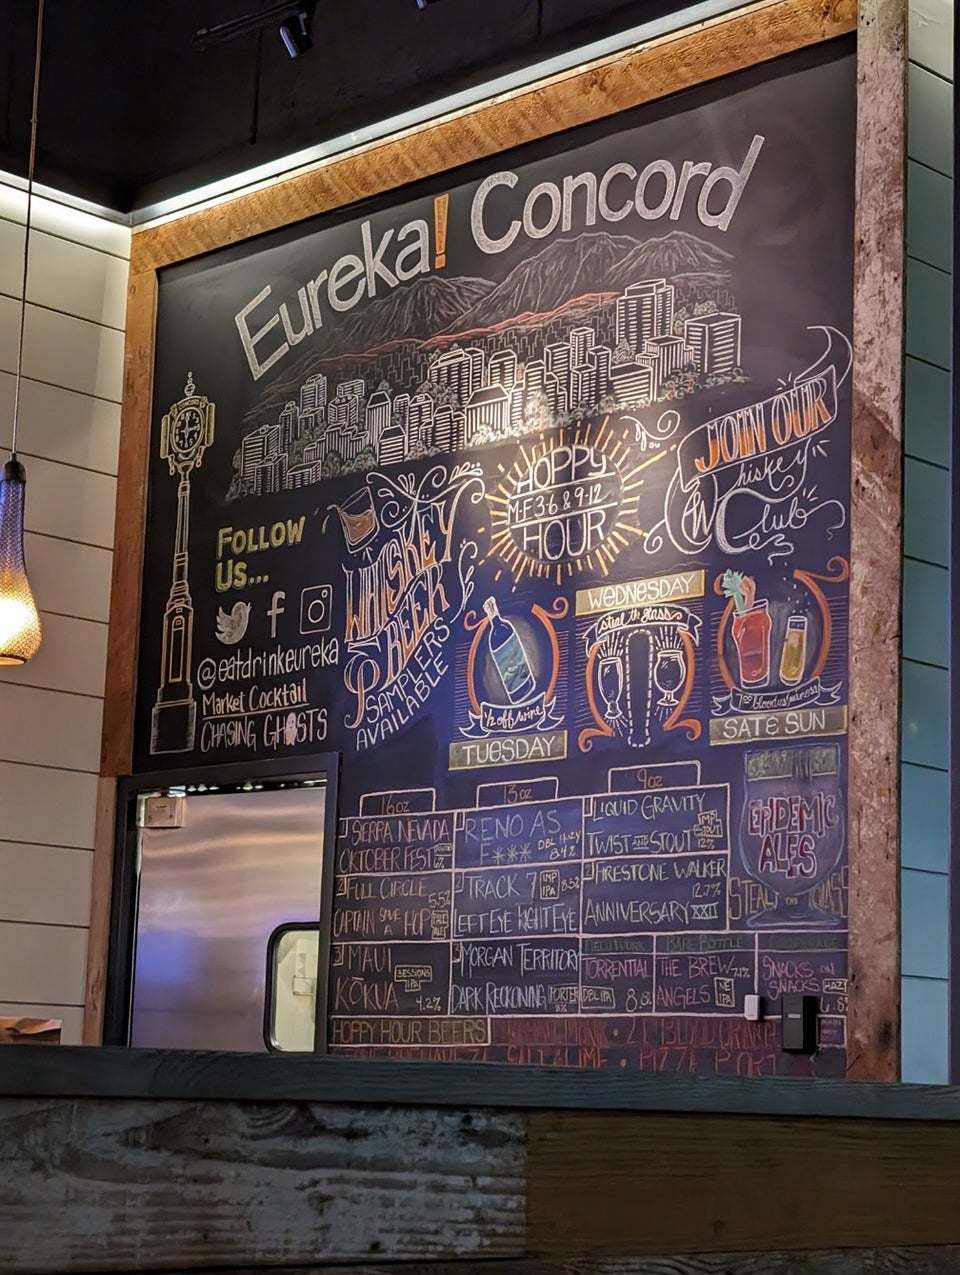 Eureka! Concord
FOLLOW
US...
@eatdrinkeureka
Market Cocktail
CHASING GHOSTS
WHISKEY
BEER
SAMPLERS
AVAILABLE
HOPPY
M-F 3-6 & 9-12
HOUR
JOIN OUR
Whiskey
Club
1/2 off wine
TUESDAY
WEDNESDAY
steal the glass
SAT & SUN
16oz
1 SIERRA NEVADA
OKTOBER FEST
2 FULL CIRCLE 5.5%
CAPTAIN SAVE A HOP PALE ALE
3 MAUI
KŌKUA SESSIONS IPA 4.2%
13oz
RENO AS
F*** DBL 8.4%
2 TRACK 7 IMP IPA 8.5%
LEFT EYE RIGHT EYE
3 MORGAN TERRITORY
DARK RECKONING PORTER
9oz
LIQUID GRAVITY
TWIST AND STOUT IMP STOUT 12%
FIRESTONE WALKER
12.7%
ANNIVERSARY XXII
FIELD WORK
TORRENTIAL
DBL IPA
BARE BOTTLE
THE BREW 7.1%
ANGELS NE IPA
SNACKS ON
SNACKS
EPIDEMIC
ALES
STEAL THE GLASS
HOPPY HOUR BEERS